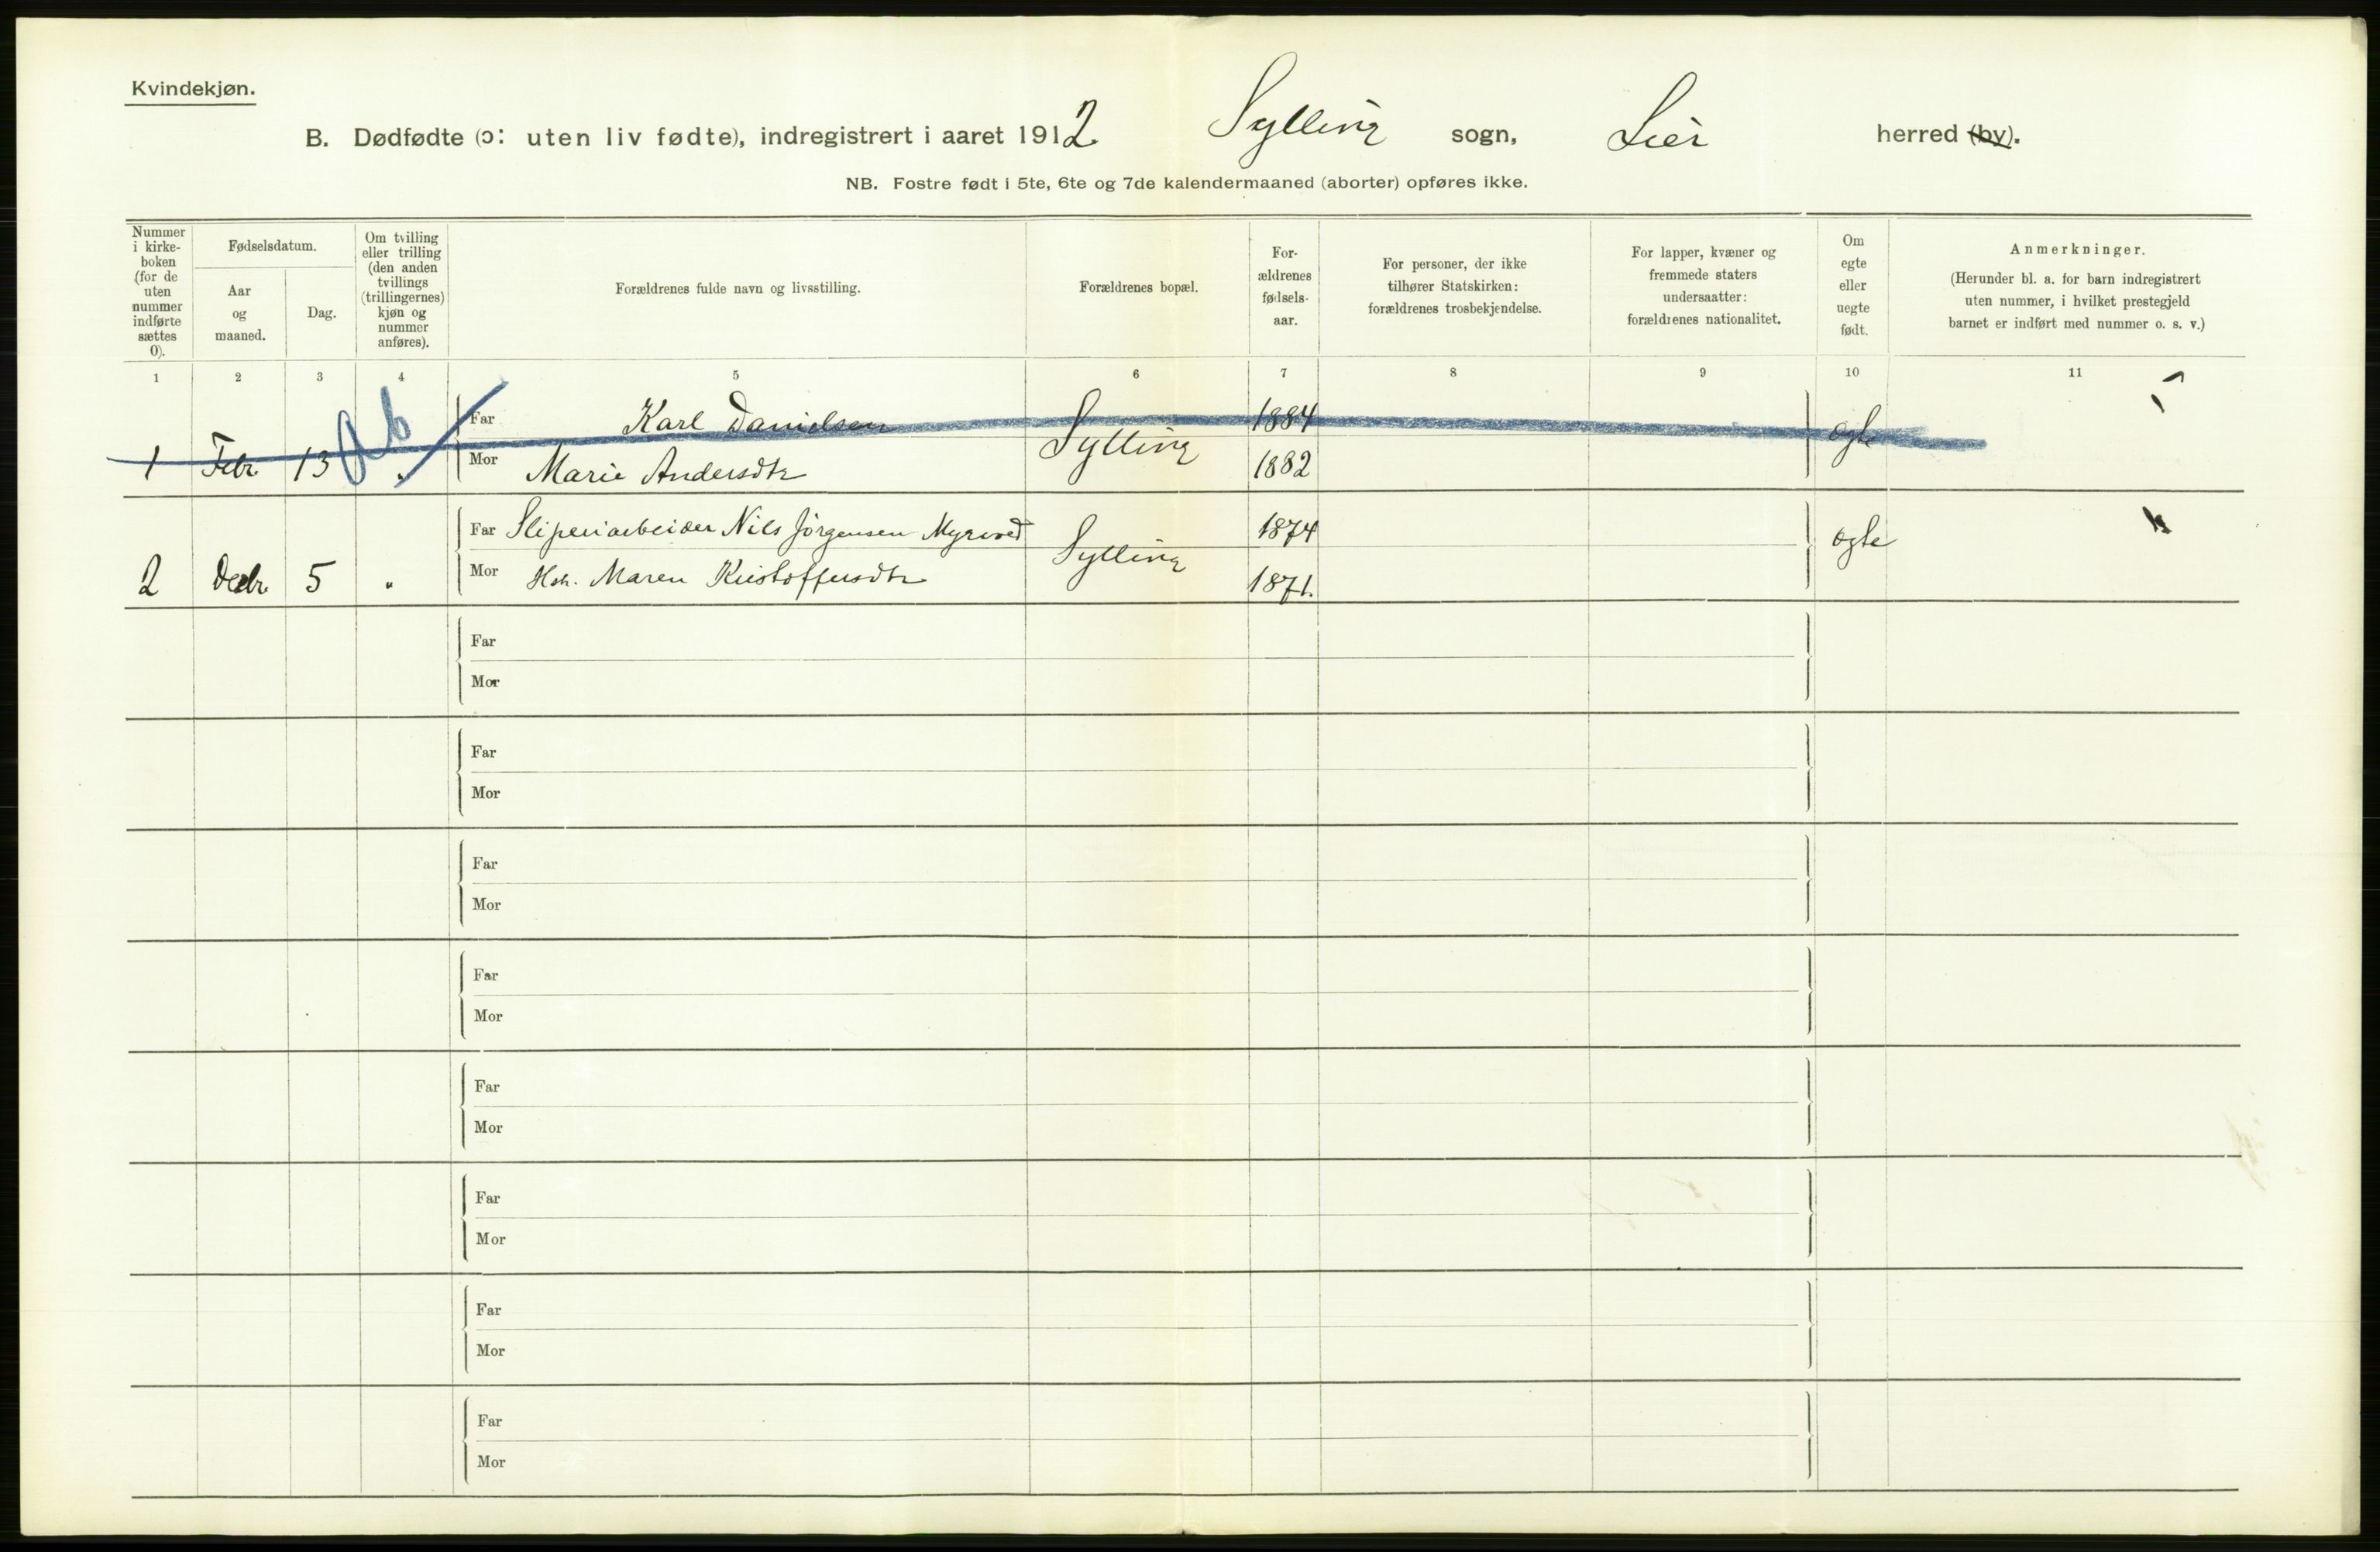 Kvindekjøn.
B. Dødfødte (ɔ: uten liv fødte), indregistrert i aaret 1912 Sylling sogn, Lier herred (by).
NB. Fostre født i 5te, 6te og 7de kalendermaaned (aborter) opføres ikke.
Nummer
i kirke-
boken
(for de
uten
nummer
indførte
sættes
0).
Fødselsdatum.
Aar
og
maaned.
Dag.
Om tvilling
eller trilling
(den anden
tvillings
(trillingernes)
kjøn og
nummer
anføres).
Forældrenes fulde navn og livsstilling.
Forældrenes bopæl.
For-
ældrenes
fødsels-
aar.
For personer, der ikke
tilhører Statskirken:
forældrenes trosbekjendelse.
For lapper, kvæner og
fremmede staters
undersaatter:
forældrenes nationalitet.
Om
egte
eller
uegte
født.
Anmerkninger.
(Herunder bl. a. for barn indregistrert
uten nummer, i hvilket prestegjeld
barnet er indført med nummer o. s. v.)
1 2 3 4 5 6 7 8 9 10 11
Ab
Far Karl Danielsen 1884
1 Febr. 13 " Mor Marie Andersdtr Sylling 1882 egte
Far Sliperiarbeider Nils Jörgensen Myrvod 1874
2 Decbr. 5 " Mor Hstr. Maren Kristoffersdtr Sylling 1871. egte
Far
Mor
Far
Mor
Far
Mor
Far
Mor
Far
Mor
Far
Mor
Far
Mor
Far
Mor